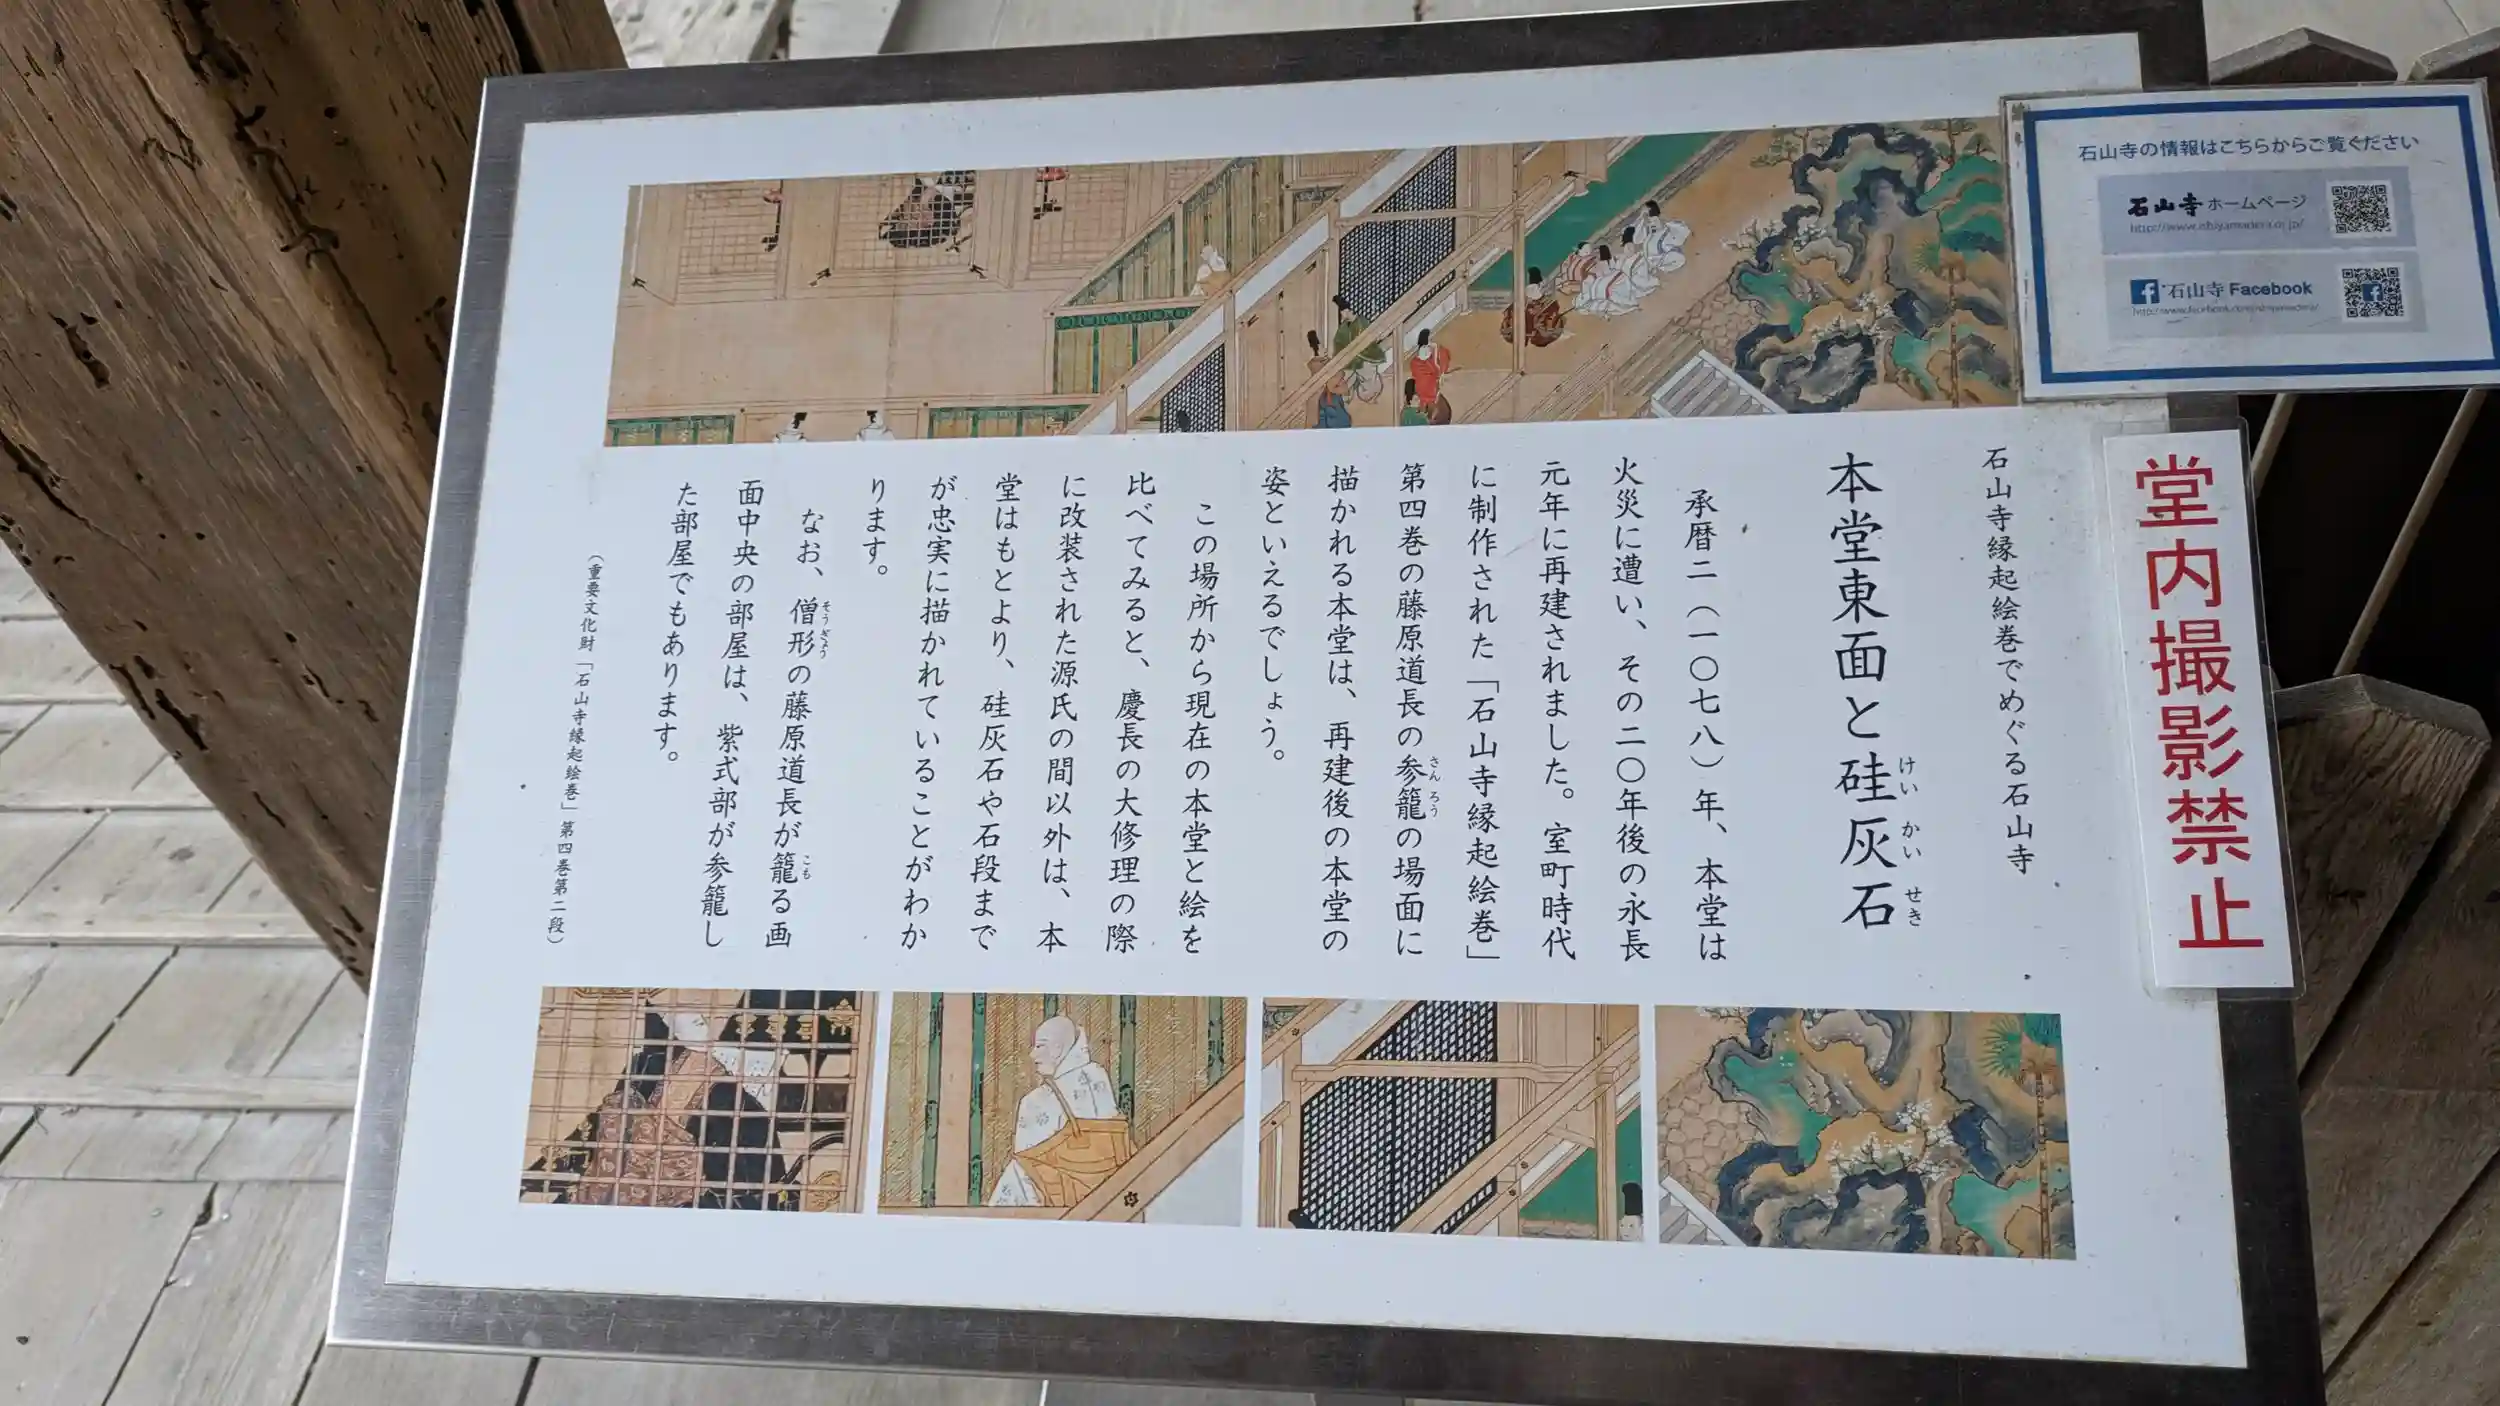 石山寺の情報はこちらからご覧ください
石山寺 ホームページ
http://www.ishiyamadera.or.jp/
石山寺 Facebook
堂内撮影禁止
石山寺縁起絵巻でめぐる石山寺
本堂東面と硅灰石
けい かい せき
承暦二（一〇七八）年、本堂は
火災に遭い、その二〇年後の永長
元年に再建されました。室町時代
に制作された「石山寺縁起絵巻」
第四巻の藤原道長の参籠の場面に
さん ろう
描かれる本堂は、再建後の本堂の
姿といえるでしょう。
この場所から現在の本堂と絵を
比べてみると、慶長の大修理の際
に改装された源氏の間以外は、本
堂はもとより、硅灰石や石段まで
が忠実に描かれていることがわか
ります。
なお、僧形の藤原道長が籠る画
そうぎょう こも
面中央の部屋は、紫式部が参籠し
た部屋でもあります。
（重要文化財「石山寺縁起絵巻」第四巻第二段）